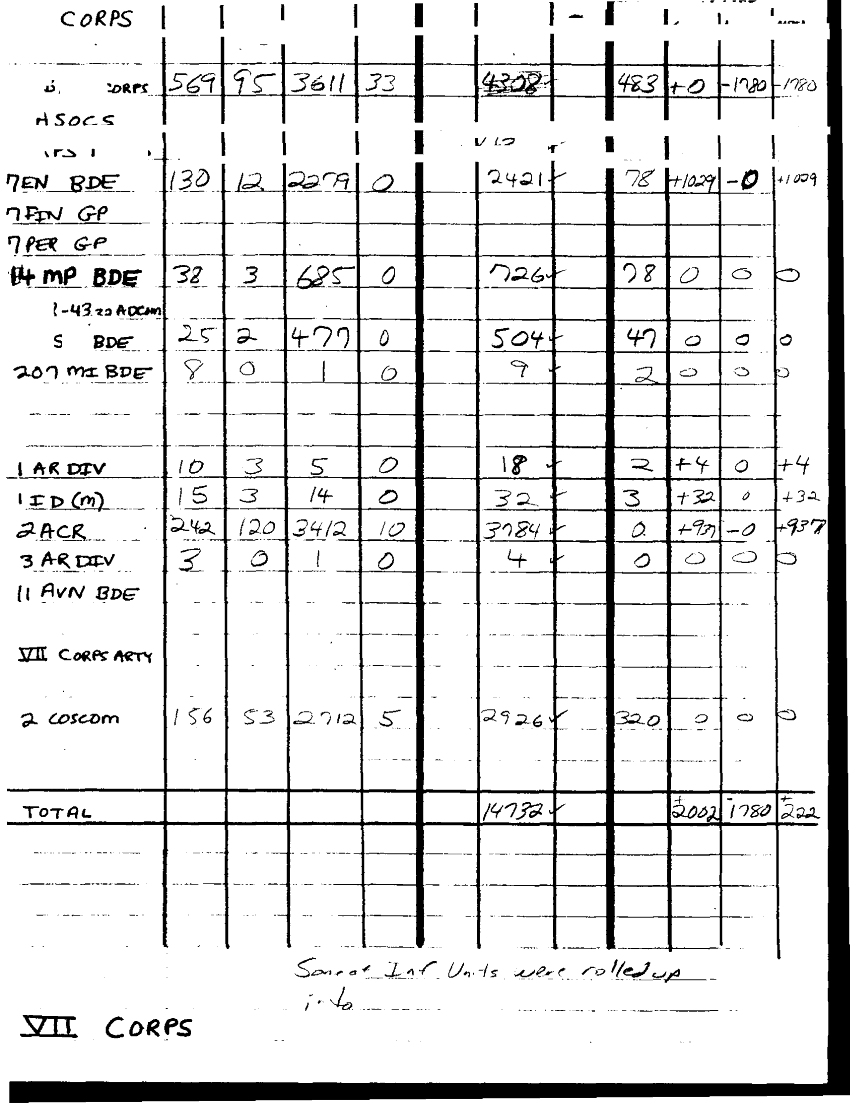 CORPS
CORPS 569 95 3611 33 4308 483 +0 -1780 -1780
HSOCS
7EN BDE 130 12 2279 0 2421✓ 78 +1029 -0 +1029
7FIN GP
7PER GP
14 MP BDE 38 3 685 0 726✓ 78 0 0 0
1-43
S BDE 25 2 477 0 504✓ 47 0 0 0
207 MI BDE 8 0 1 0 9✓ 2 0 0 0
1 AR DIV 10 3 5 0 18✓ 2 +4 0 +4
1 ID (m) 15 3 14 0 32✓ 3 +32 0 +32
2 ACR 242 120 3412 10 3784✓ 0 +937 -0 +937
3 AR DIV 3 0 1 0 4✓ 0 0 0 0
11 AVN BDE
VII CORPS ARTY
2 COSCOM 156 53 2712 5 2926✓ 320 0 0 0
TOTAL 14732✓ +2002 -1780 +222
Inf Units were rolled up
into
VII CORPS